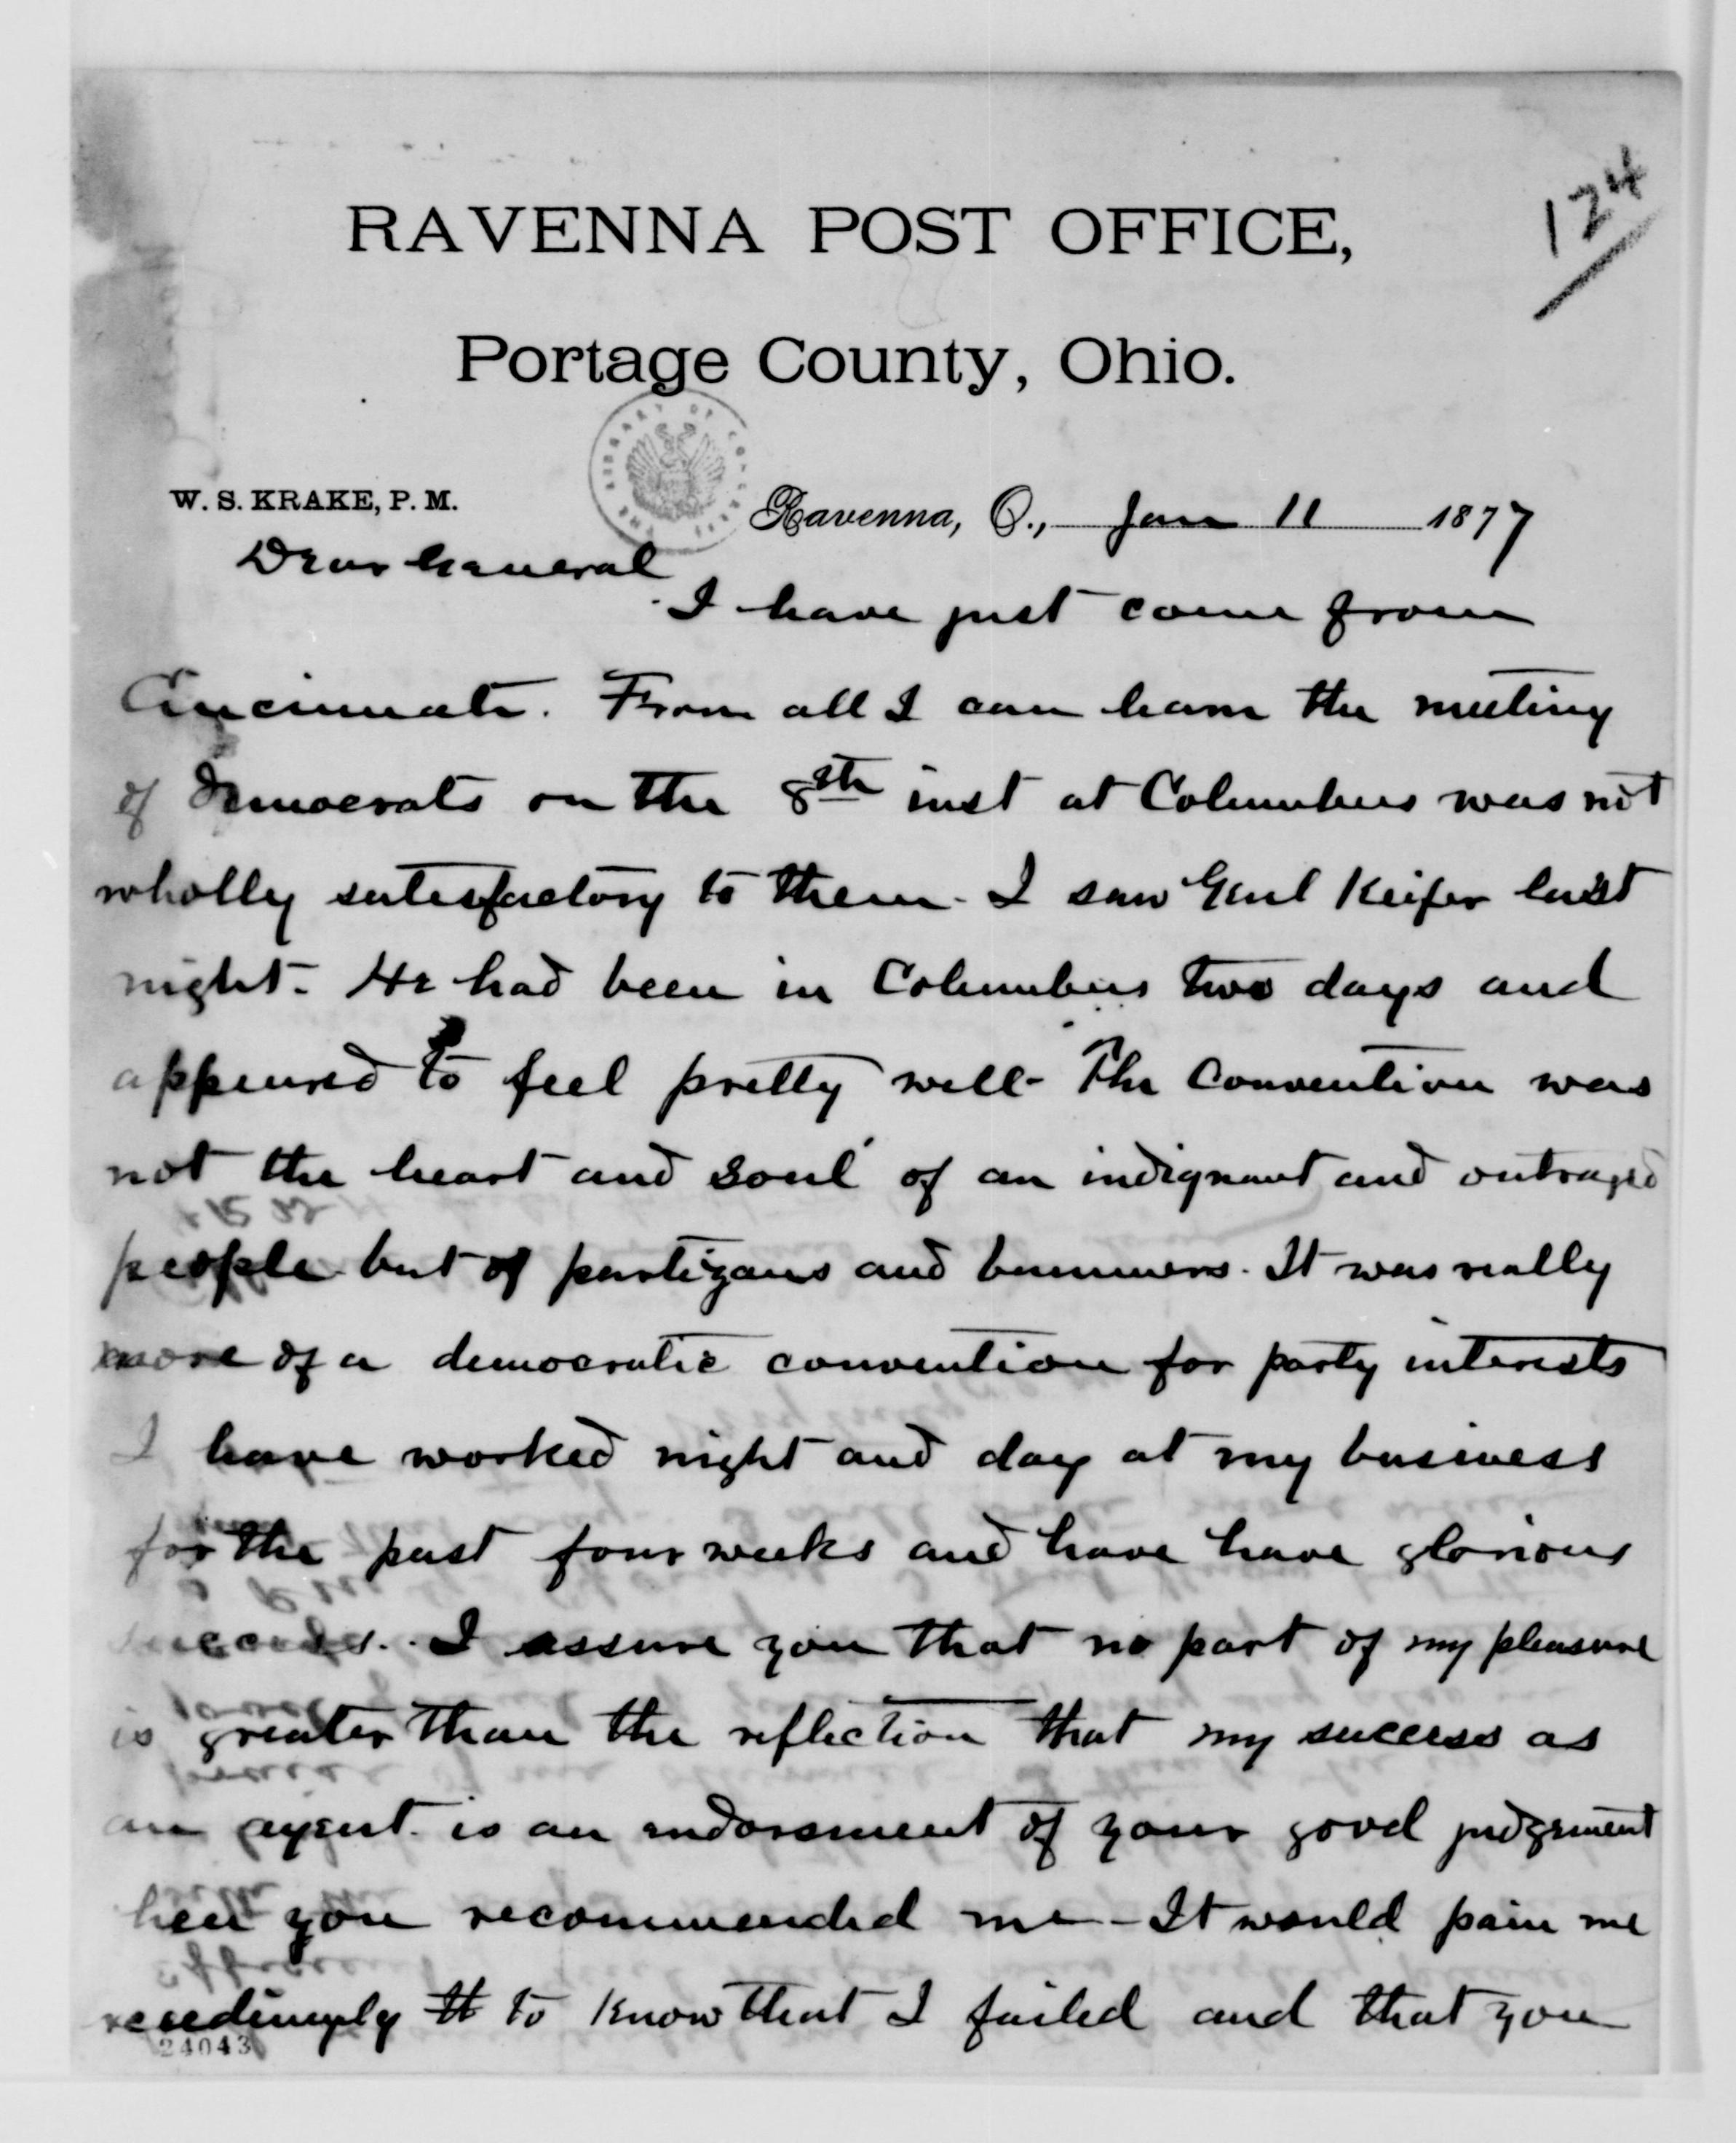 124
RAVENNA POST OFFICE,
Portage County, Ohio.
W. S. KRAKE, P. M.
Ravenna, O., Jan 11 1877
Dear General
I have just come from
Cincinnati. From all I can learn the meeting
of democrats on the 8th inst at Columbus was not
wholly satisfactory to them. I saw Genl Keifer last
night. He had been in Columbus two days and
appeared to feel pretty well- The Convention was
not the heart and soul of an indignant and outraged
people but of partizans and bummers. It was really
more of a democratic convention for party interests
I have worked night and day at my business
for the past four weeks and have have glorious
success. I assure you that no part of my pleasure
is greater than the reflection that my success as
an agent is an endorsement of your good judgement
hen you recommended me - It would pain me
xceedingly to know that I failed and that you
24043